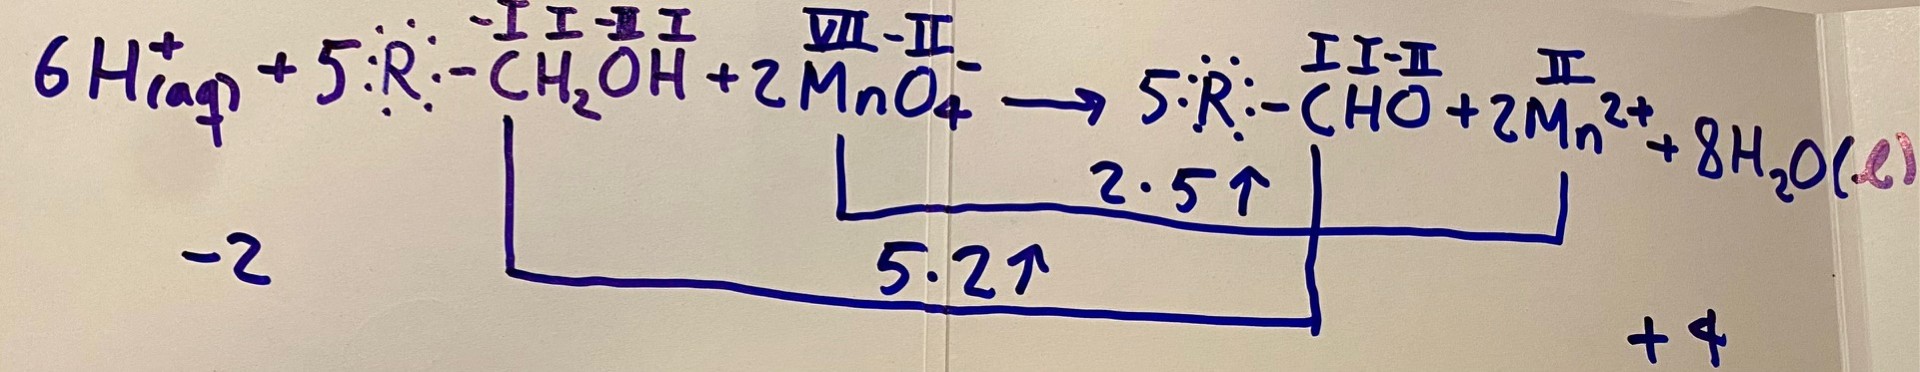 -I I -II I VII -II I I -II II
6H⁺(aq) + 5 :R: -CH₂OH + 2MnO₄⁻ → 5 :R: -CHO + 2Mn²⁺ + 8H₂O(l)
2·5↑
-2 5·2↑
+4